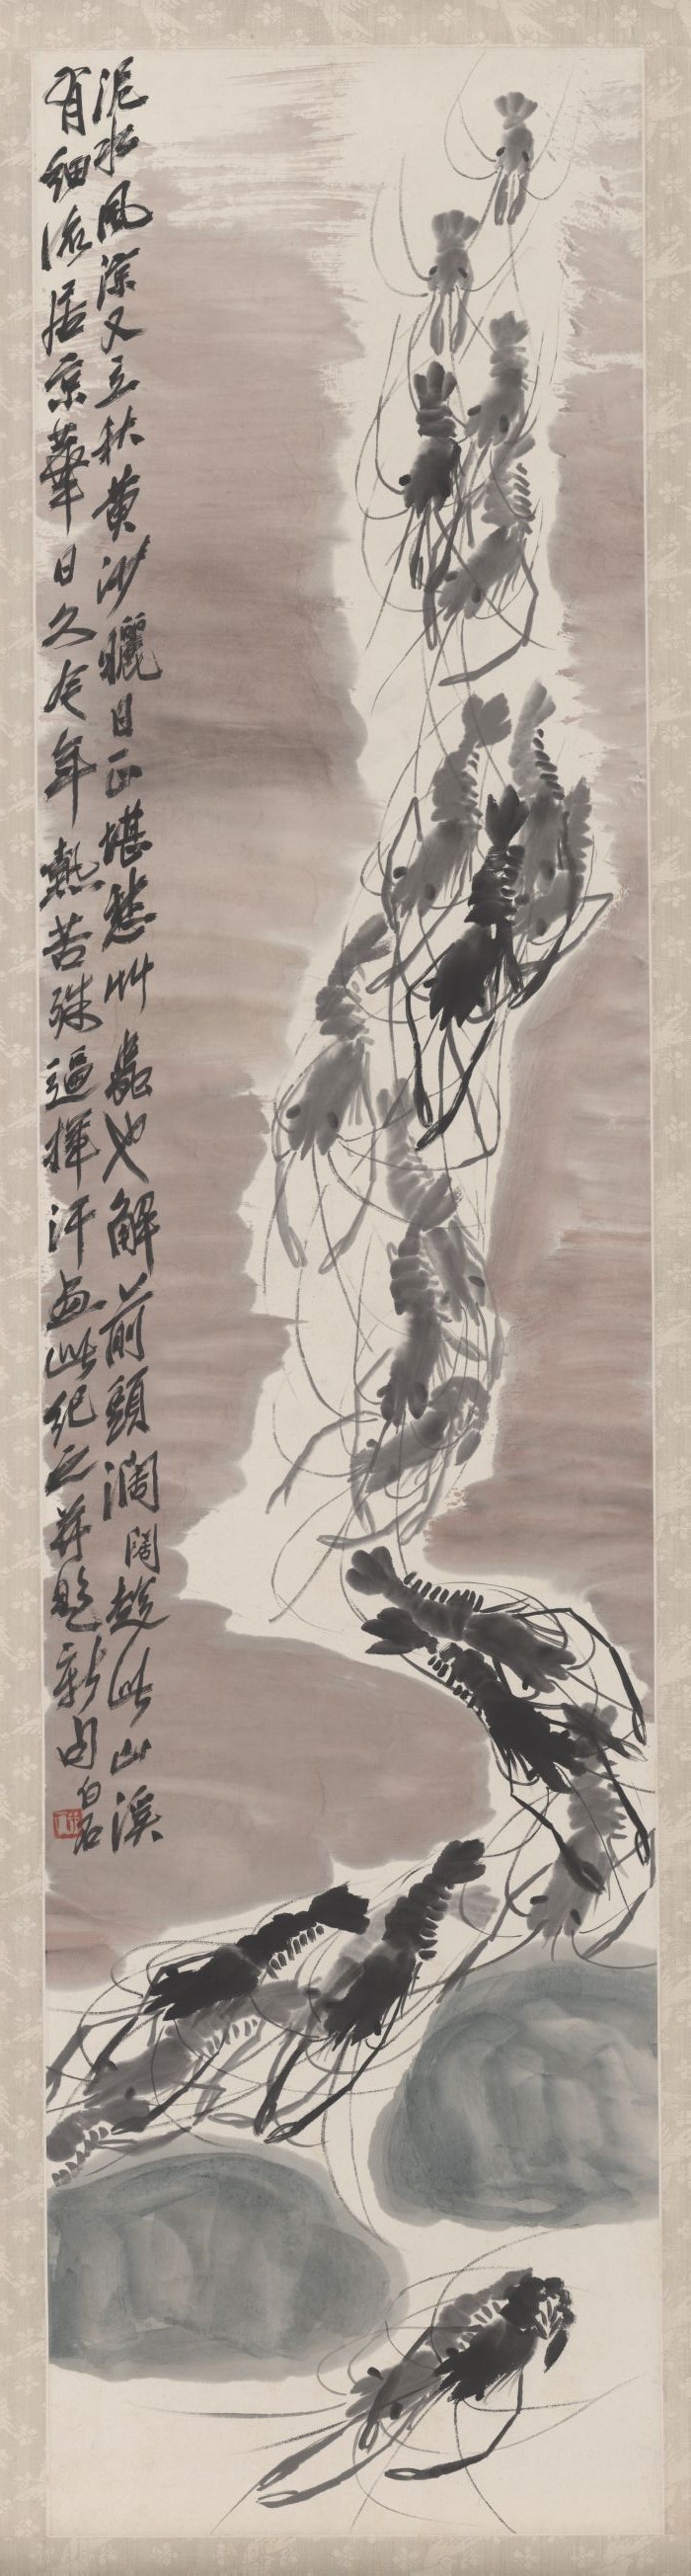 泥水風涼又立秋黃沙曬日正堪愁草虫也解前頭闊闊趁此山溪
有細流居京華日久今年熱苦殊逼揮汗畫此紀之并題新句白石